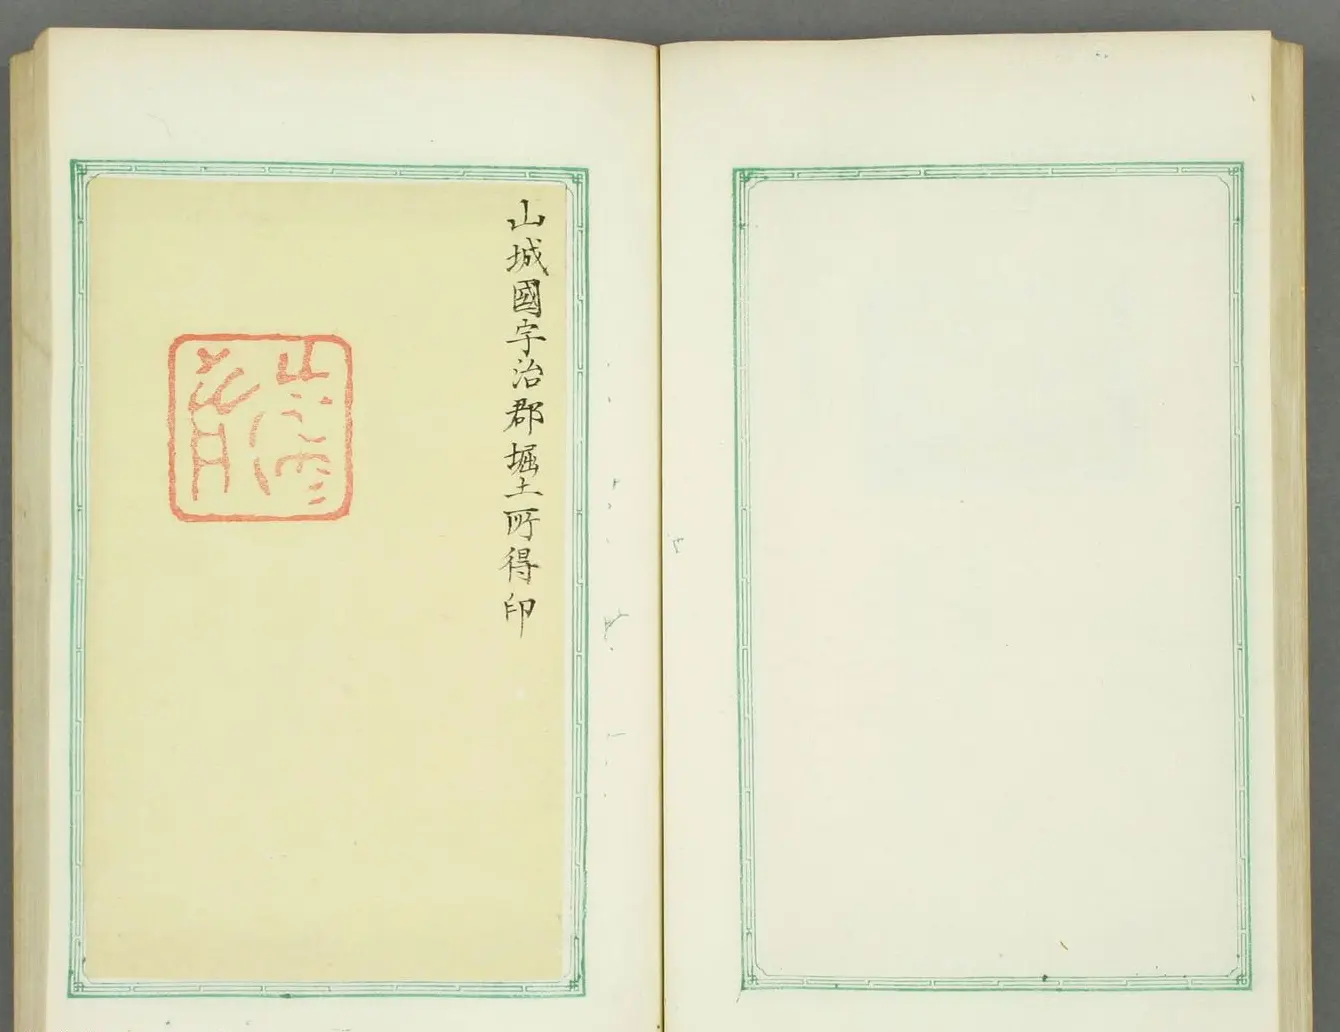 山城國宇治郡堀土所得印